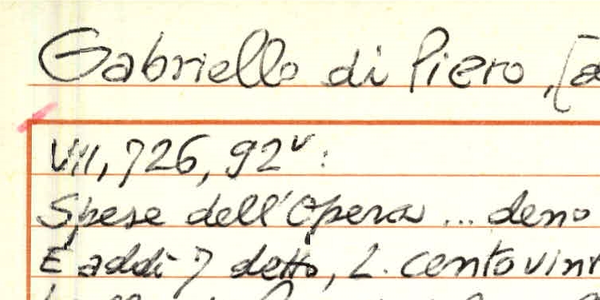 Gabriello di Piero, [a
VII, 726, 92v:
Spese dell'Opera ... deno
E addì 7 detto, L. centovint